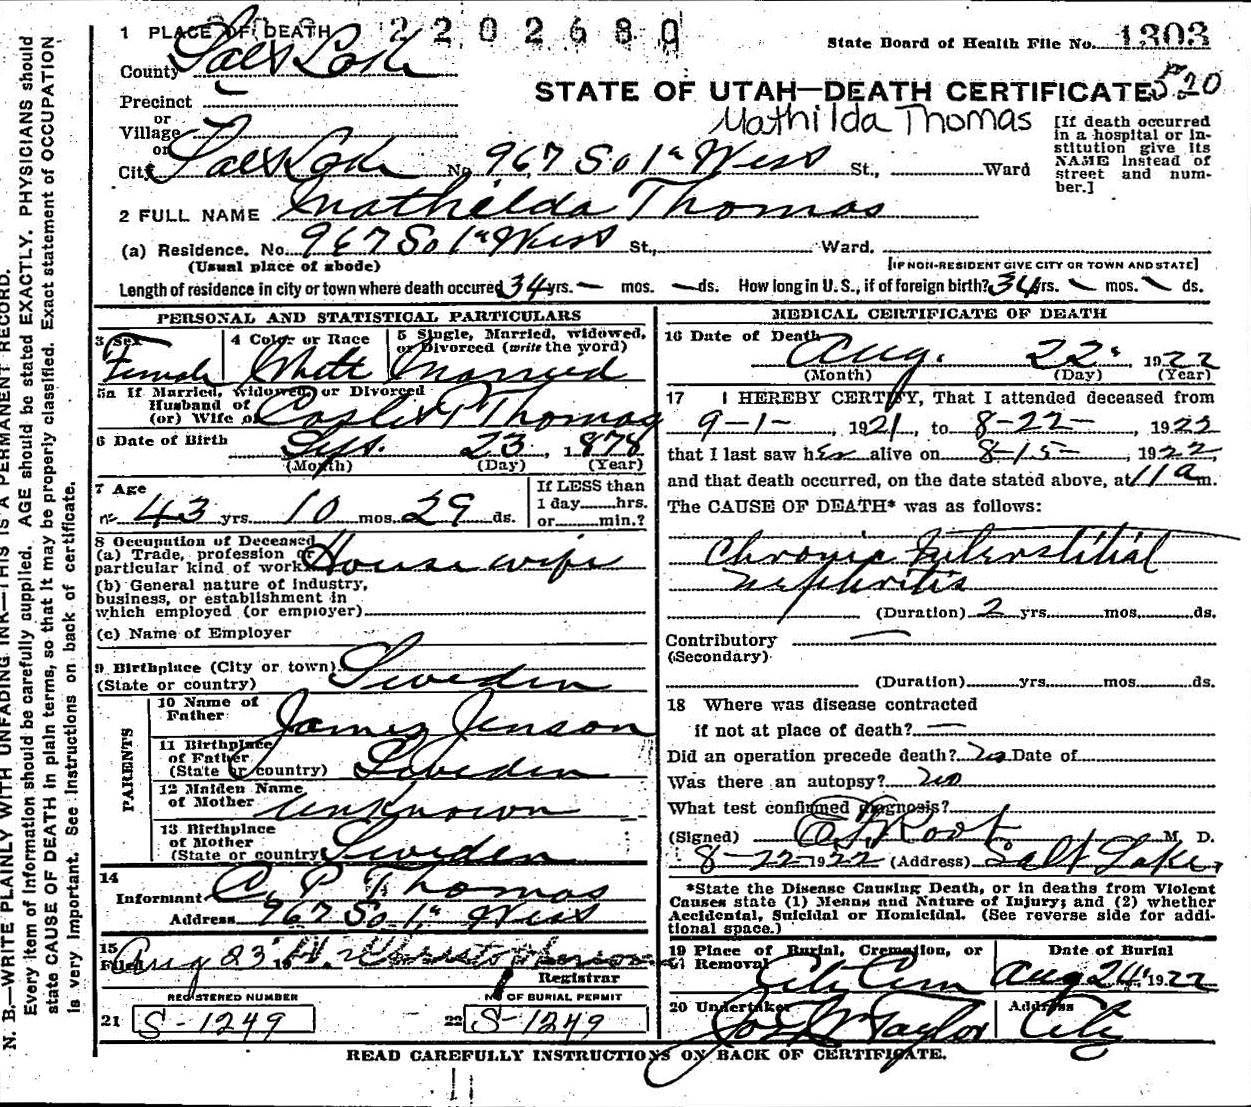 N. B.—WRITE PLAINLY WITH UNFADING INK—THIS IS A PERMANENT RECORD.
Every item of information should be carefully supplied. AGE should be stated EXACTLY. PHYSICIANS should
state CAUSE OF DEATH in plain terms, so that it may be properly classified. Exact statement of OCCUPATION
is very important. See instructions on back of certificate.
2202680
State Board of Health File No. 1303
1 PLACE OF DEATH
County Salt Lake
STATE OF UTAH—DEATH CERTIFICATE
Precinct
or
Village
or
Mathilda Thomas
[If death occurred in a hospital or institution give its NAME instead of street and number.]
City Salt Lake No. 967 So 1st West St., Ward
2 FULL NAME Mathilda Thomas
(a) Residence. No. 967 So 1st West St., Ward.
(Usual place of abode) [IF NON-RESIDENT GIVE CITY OR TOWN AND STATE]
Length of residence in city or town where death occured 34 yrs. — mos. — ds. How long in U. S., if of foreign birth? 34 yrs. — mos. — ds.
PERSONAL AND STATISTICAL PARTICULARS
3 Sex Female
4 Color or Race White
5 Single, Married, widowed, or Divorced (write the word) Married
5a If Married, Widowed, or Divorced
Husband of
(or) Wife of P Thomas
6 Date of Birth Sept. 23, 1878
(Month) (Day) (Year)
7 Age 43 yrs. 10 mos. 29 ds.
If LESS than
1 day hrs.
or min.?
8 Occupation of Deceased
(a) Trade, profession or
particular kind of work House wife
(b) General nature of industry,
business, or establishment in
which employed (or employer)
(c) Name of Employer
9 Birthplace (City or town)
(State or country) Sweden
PARENTS
10 Name of Father James Jenson
11 Birthplace of Father (State or country) Sweden
12 Maiden Name of Mother Unknown
13 Birthplace of Mother (State or country) Sweden
14
Informant C. P. Thomas
Address 967 So 1st West
15
Filed Aug 23
Registrar
REGISTERED NUMBER
21 S-1249
No OF BURIAL PERMIT
22 S-1249
MEDICAL CERTIFICATE OF DEATH
16 Date of Death Aug. 22 1922
(Month) (Day) (Year)
17 I HEREBY CERTIFY, That I attended deceased from
9-1-, 1921, to 8-22-, 1922
that I last saw her alive on 8-15-, 1922,
and that death occurred, on the date stated above, at 11 a m.
The CAUSE OF DEATH* was as follows:
Chronic Interstitial
Nephritis
(Duration) 2 yrs. mos. ds.
Contributory —
(Secondary)
(Duration) yrs. mos. ds.
18 Where was disease contracted
if not at place of death? —
Did an operation precede death? no Date of
Was there an autopsy? no
What test confirmed diagnosis?
(Signed) Root M. D.
8-22-1922 (Address) Salt Lake,
*State the Disease Causing Death, or in deaths from Violent
Causes state (1) Menus and Nature of Injury; and (2) whether
Accidental, Suicidal or Homicidal. (See reverse side for additional space.)
19 Place of Burial, Cremation, or Removal City Cem
Date of Burial Aug 24, 1922
20 Undertaker Taylor
Address City
READ CAREFULLY INSTRUCTIONS ON BACK OF CERTIFICATE.